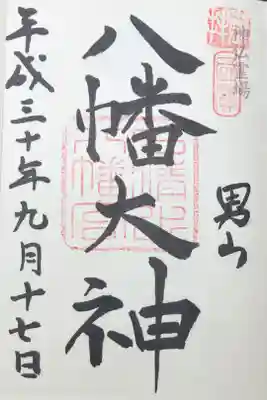 神仏霊場
男山
八幡大神
平成三十年九月十七日